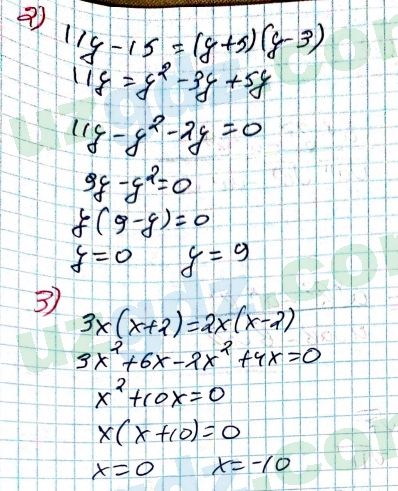 2)
11y - 15 = (y+5)(y-3)
11y = y² - 3y + 5y
11y - y² - 2y = 0
9y - y² = 0
y(9-y) = 0
y = 0 y = 9
3)
3x(x+2) = 2x(x-2)
3x² + 6x - 2x² + 4x = 0
x² + 10x = 0
x(x+10) = 0
x = 0 x = -10